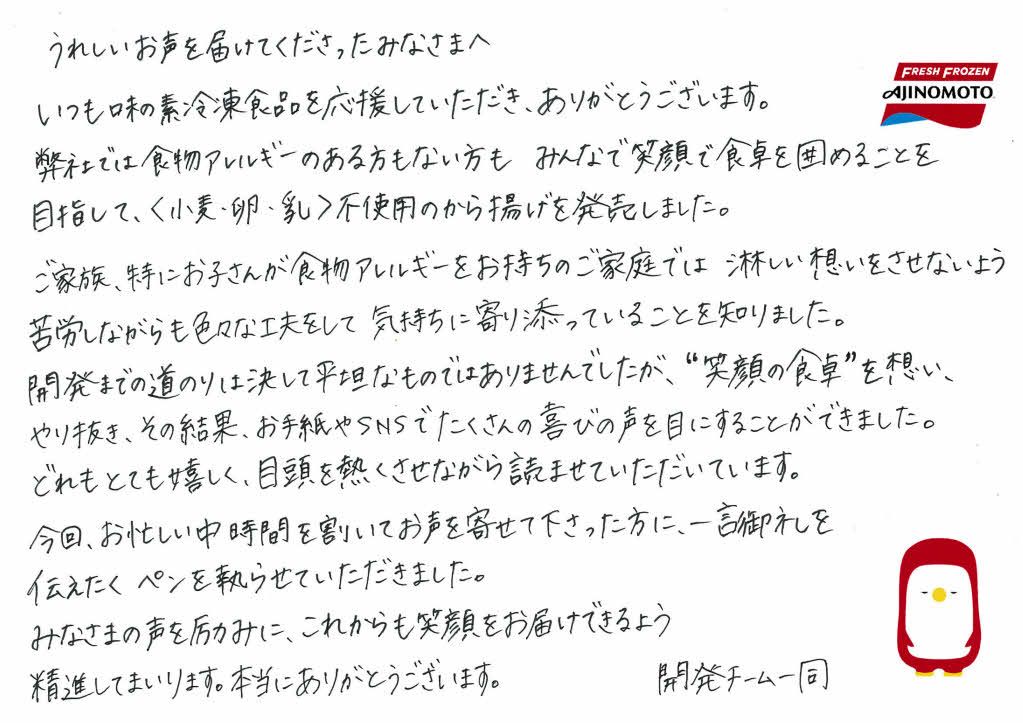 うれしいお声を届けてくださったみなさまへ
FRESH FROZEN
AJINOMOTO
いつも味の素冷凍食品を応援していただき、ありがとうございます。
弊社では食物アレルギーのある方もない方も みんなで笑顔で食卓を囲めることを
目指して、〈小麦・卵・乳〉不使用のから揚げを発売しました。
ご家族、特にお子さんが食物アレルギーをお持ちのご家庭では 淋しい想いをさせないよう
苦労しながらも色々な工夫をして 気持ちに寄り添っていることを知りました。
開発までの道のりは決して平坦なものではありませんでしたが、“笑顔の食卓”を想い、
やり抜き、その結果、お手紙やSNSでたくさんの喜びの声を目にすることができました。
どれもとても嬉しく、目頭を熱くさせながら読ませていただいています。
今回、お忙しい中時間を割いてお声を寄せて下さった方に、一言御礼を
伝えたく ペンを執らせていただきました。
みなさまの声を励みに、これからも笑顔をお届けできるよう
精進してまいります。本当にありがとうございます。
開発チーム一同